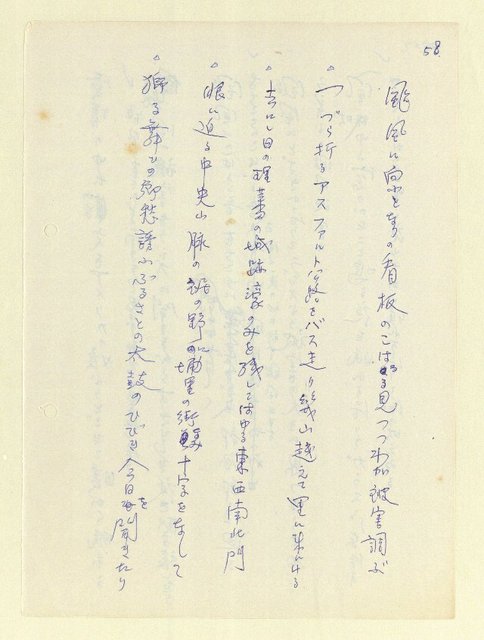 58.
颱風に向ひとなりの看板のこはるる見つつわが被害調ぶ
つづら折るアスファルト公路をバス走り幾山越えて里に来にける
去にし日の

の城跡濠のみを残してはゆる東西南北門
眼に迫る中央山脈の

の野に埔里の街は十字をなして
獅子舞ひの郷愁誘ふふるさとの太鼓のひびき今日を聞きたり